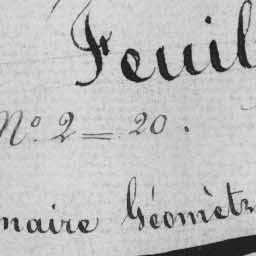 Feuil
N° 2 = 20.
naire Géomètr